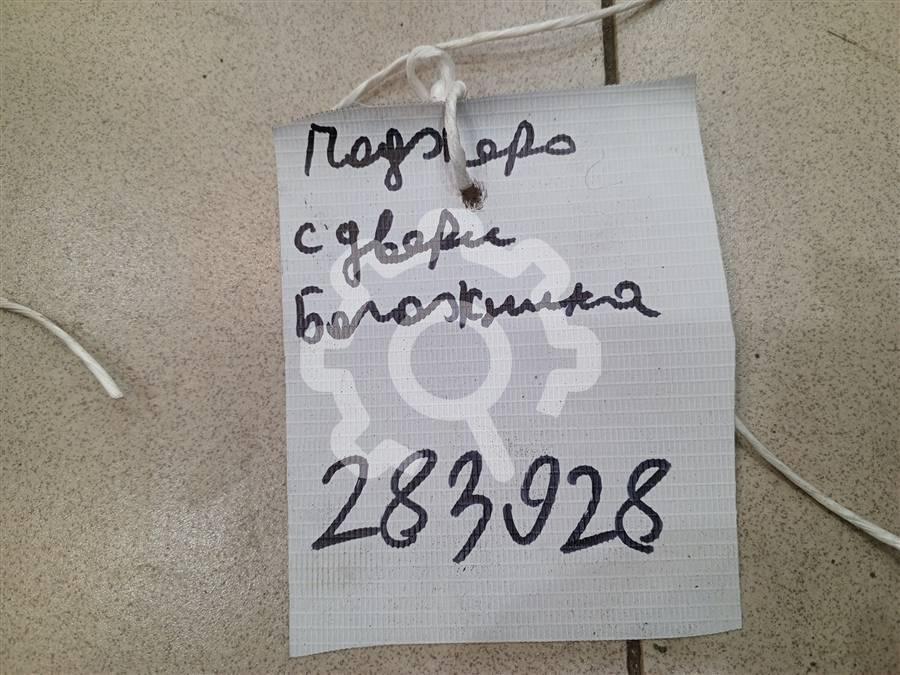 Паджеро
с двери
Багажника
283928